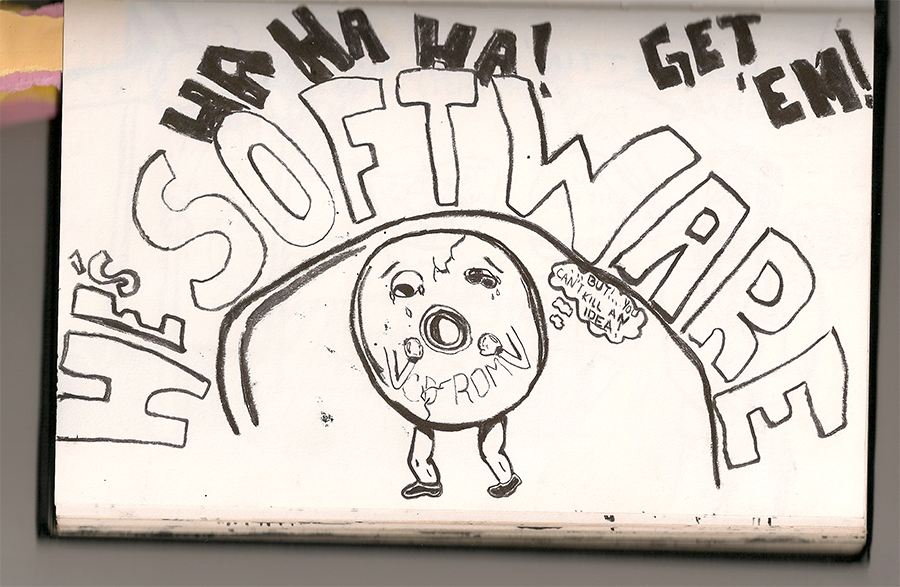 HA HA HA!
GET
'EM!
HE'S SOFTWARE
BUT... YOU
CAN'T KILL AN
IDEA!
CD-ROM